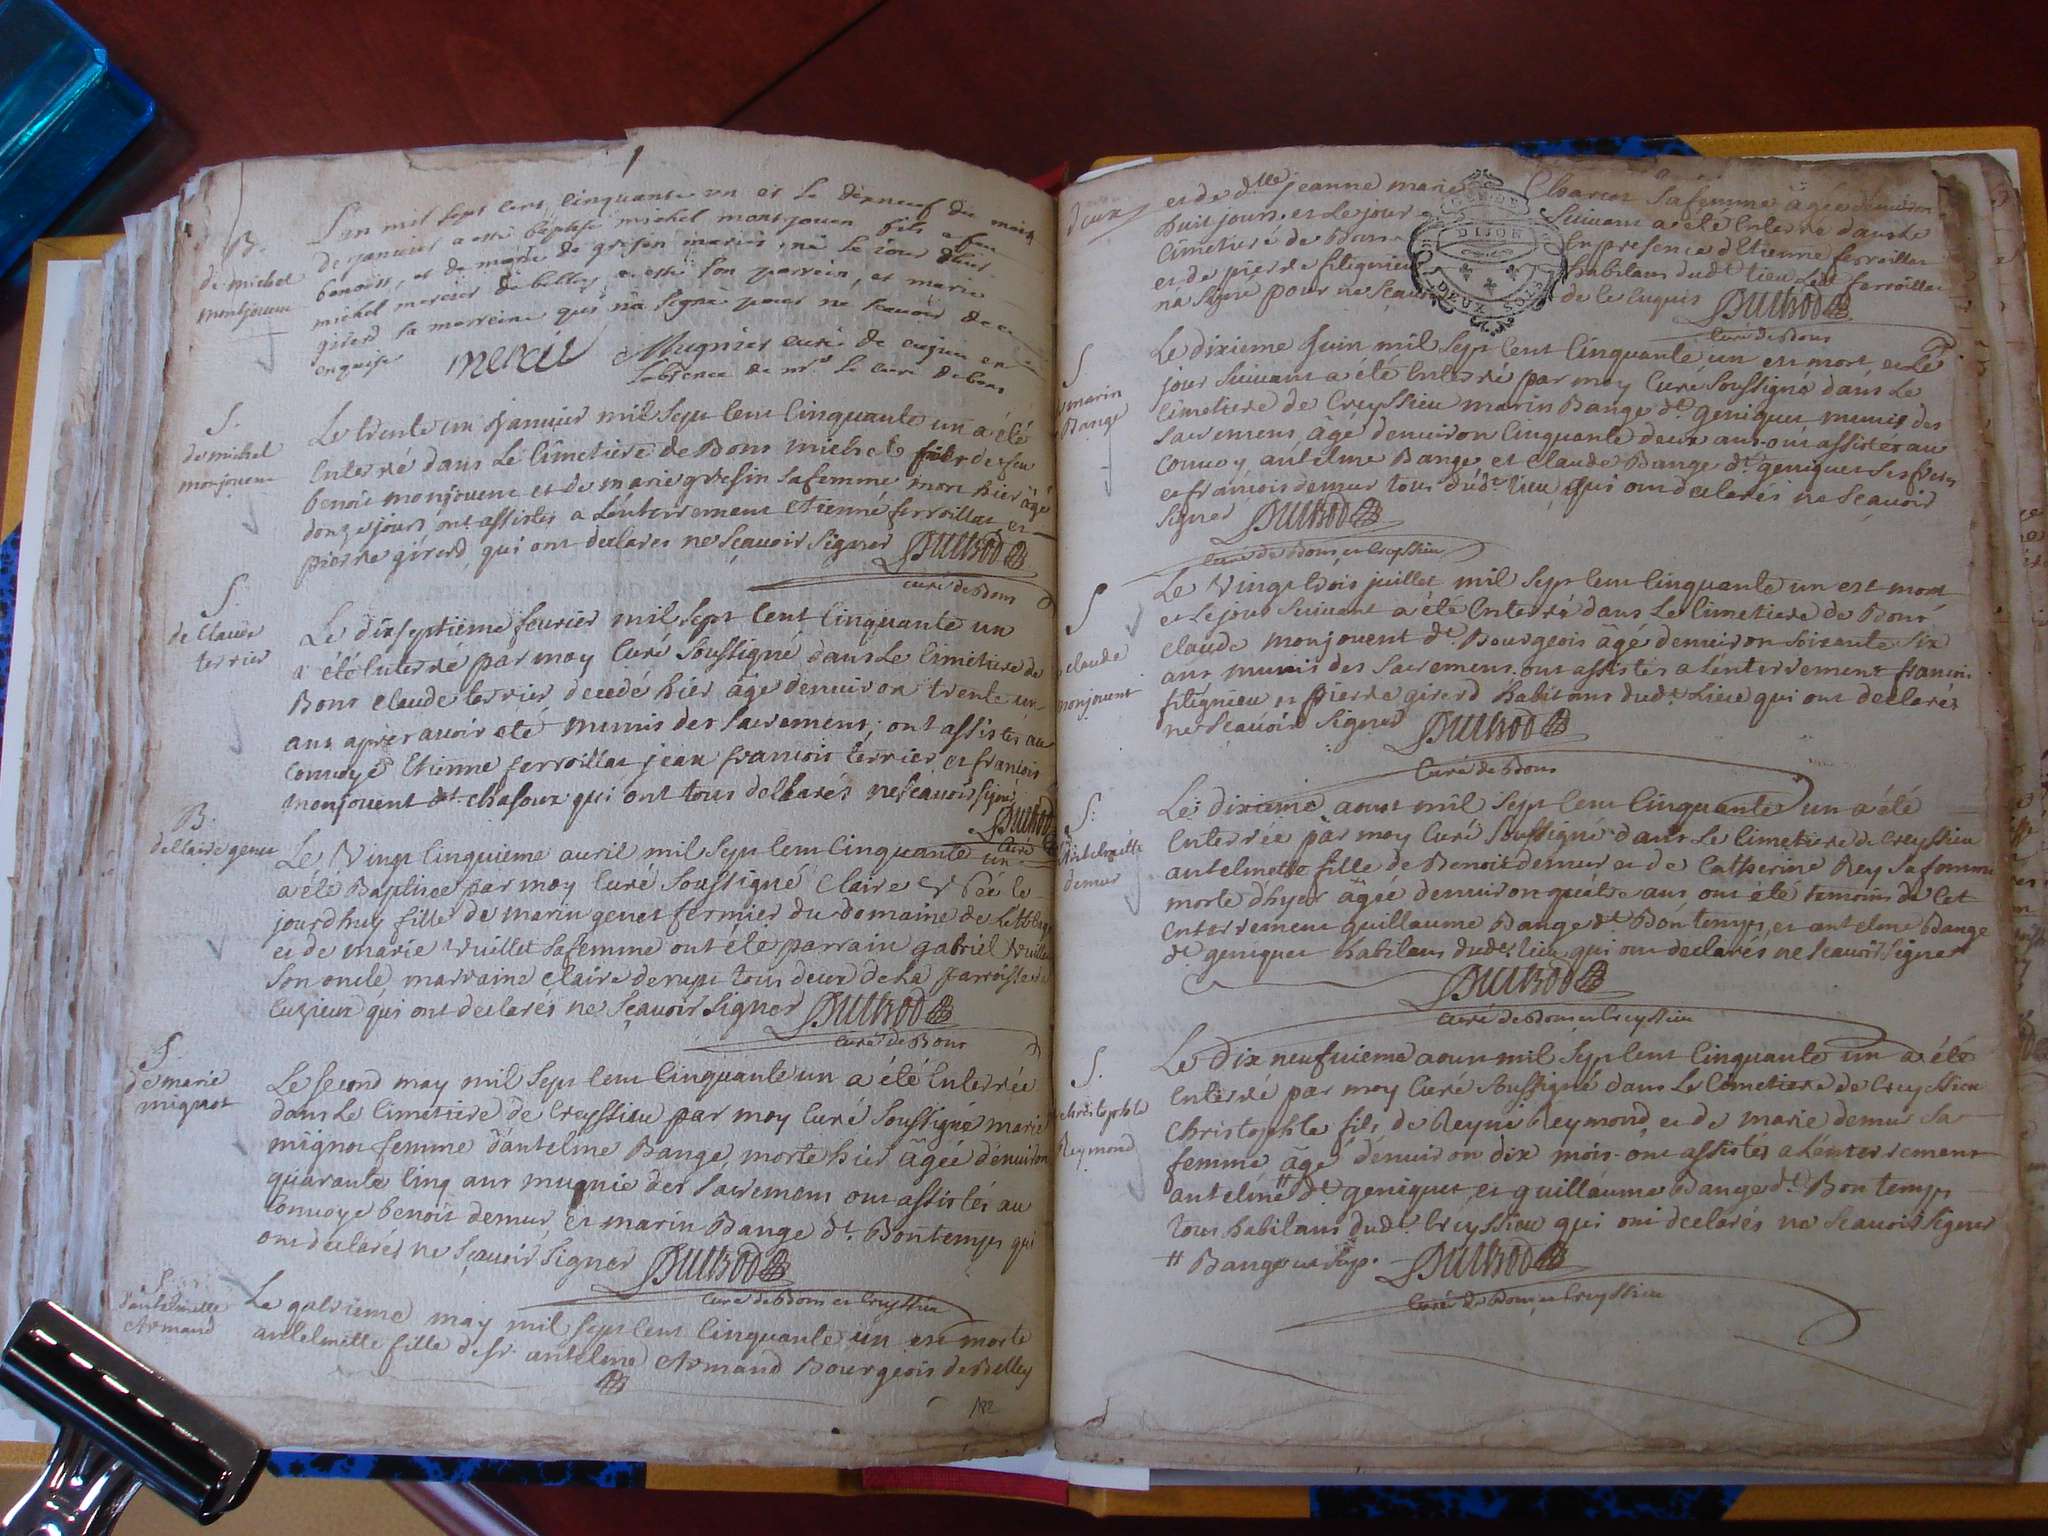 B.
de michel
montjouen
L'an mil sept cent cinquante un et le dixneuf du mois
de janvier a esté baptisé michel montjouen fils a feu
benoist, et de marie de gresin mariés, né le jour d'hier
michel mercier de belley a esté son parrein, et marie
girerd sa marreine qui n'a signé pour ne scavoir de ce
enquise mercier Mugnier curé de cuzieu en
l'absence de mr. le curé de bons
S.
de michel
monjouent
Le trente un Janvier mil Sept Cent Cinquante un a été
Enterré dans Le Cimetiere de Bons michel fils de feu
benoit monjouent et de marie gresin Safemme mort hier âgé
donze jours ont assistés a L'enterrement etienne ferroillat et
pierre girerd, qui ont declarés ne Sçavoir Signer Dutrod
Curé de Bons
S.
de Claude
terrier
Le dixseptième fevrier mil Sept Cent Cinquante un
a été Enterré par moy Curé Soussigné dans Le Cimetiere de
Bons Claude terrier decedé hier âgé denviron trente un
ans après avoir eté munis des Sacremens, ont assistés au
Convoye Etienne ferroillat jean francois terrier et francois
monjouent dt. chafoux qui ont tous declarés ne Scavoir signer
Dutrod
Curé
B.
de Claire genet
Le Vingt Cinquieme avril mil Sept Cent Cinquante un
a été Baptisée par moy Curé Soussigné Claire Née le
jourdhuy fille de marin genet fermier du Domaine de
et de marie Vuillet Safemme ont été parrain gabriel Vuillet
Son oncle marraine Claire derupt tous deux de La parroisse de
Cuzieux qui ont declarés ne Sçavoir Signer Dutrod
Curé de Bons
S.
de marie
mignot
Le Second may mil Sept Cent Cinquante un a été Enterrée
dans Le Cimetiere de Creyssieu par moy Curé Soussigné marie
mignot femme d'antelme Bange, morte hier âgée d'environ
quarante Cinq ans mugnie des Sacremens ont assistés au
Convoye benoit demur, et marin Bange dt. Bontemps qui
ont declarés ne Sçavoir Signer Dutrod
Curé de Bons et Creyssieu
S.
d'antelmette
Armand
Le quatrieme may mil Sept Cent Cinquante un est morte
antelmette fille de Sr. antelme Armand Bourgeois de Belley
182
deux
et de dlle jeanne marie Charcot Safemme âgée denviron
huit jours, et Le jour Suivant a été Enterré dans Le
Cimetiere de Bons En presence d'Etienne ferroillat
et de pierre filignieu habitans dudt. lieu Ledt ferroillat
na Signé pour ne Sçavoir de ce Enquis Dutrod
Curé de Bons
DIJON
DEUX SOLS
S
marin
Bange
Le dixieme Juin mil Sept Cent Cinquante un est mort et Le
jour Suivant a été Enterré par moy Curé Soussigné dans Le
Cimetiere de Creyssieu marin Bange dt. geniquet munis des
Sacremens, âgé denviron Cinquante deux ans ont assistés au
Convoy antelme Bange et Claude Bange dt. geniquet Ses freres
et francois demur tous dudt. lieu qui ont declarés ne Sçavoir
Signer Dutrod
Curé de Bons et Creyssieu
S
claude
monjouent
Le Vingt trois juillet mil Sept Cent Cinquante un est mort
et Le jour Suivant a été Enterré dans Le Cimetiere de Bons
claude monjouent dt. Bourgeois âgé denviron Soixante Six
ans munis des Sacremens, ont assistés a Lenterrement francois
filignieu et pierre girerd habitans dudt. Lieu qui ont declarés
ne Scavoir Signer Dutrod
Curé de Bons
S.
antelmette
demur
Le dixieme aoust mil Sept Cent Cinquante un a été
Enterrée par moy Curé Soussigné dans Le Cimetiere de Creyssieu
antelmette fille de Benoit demur et de Catherine Rey Safemme
morte d'hyer âgée denviron quatre ans ont été temoins de Cet
enterrement guillaume Bange dt. Bontemps, et antelme Bange
dt. geniquet habitans dudt. lieu qui ont declarés ne Scavoir Signer
Dutrod
Curé de Bons et Creyssieu
S.
christophle
Reymond
Le Dix neufvieme aoust mil Sept Cent Cinquante un a été
Enterré par moy Curé Soussigné dans Le Cimetiere de Creyssieu
Christophle fils de Reyné Reymond et de marie demur Sa
femme âgé denviron dix mois ont assistés a Lenterrement
antelme # dt. geniquet et guillaume Bange dt. Bontemps
tous habitans dudt. Creyssieu qui ont declarés ne Scavoir Signer
# Bange Dutrod
Curé de Bons et Creyssieu